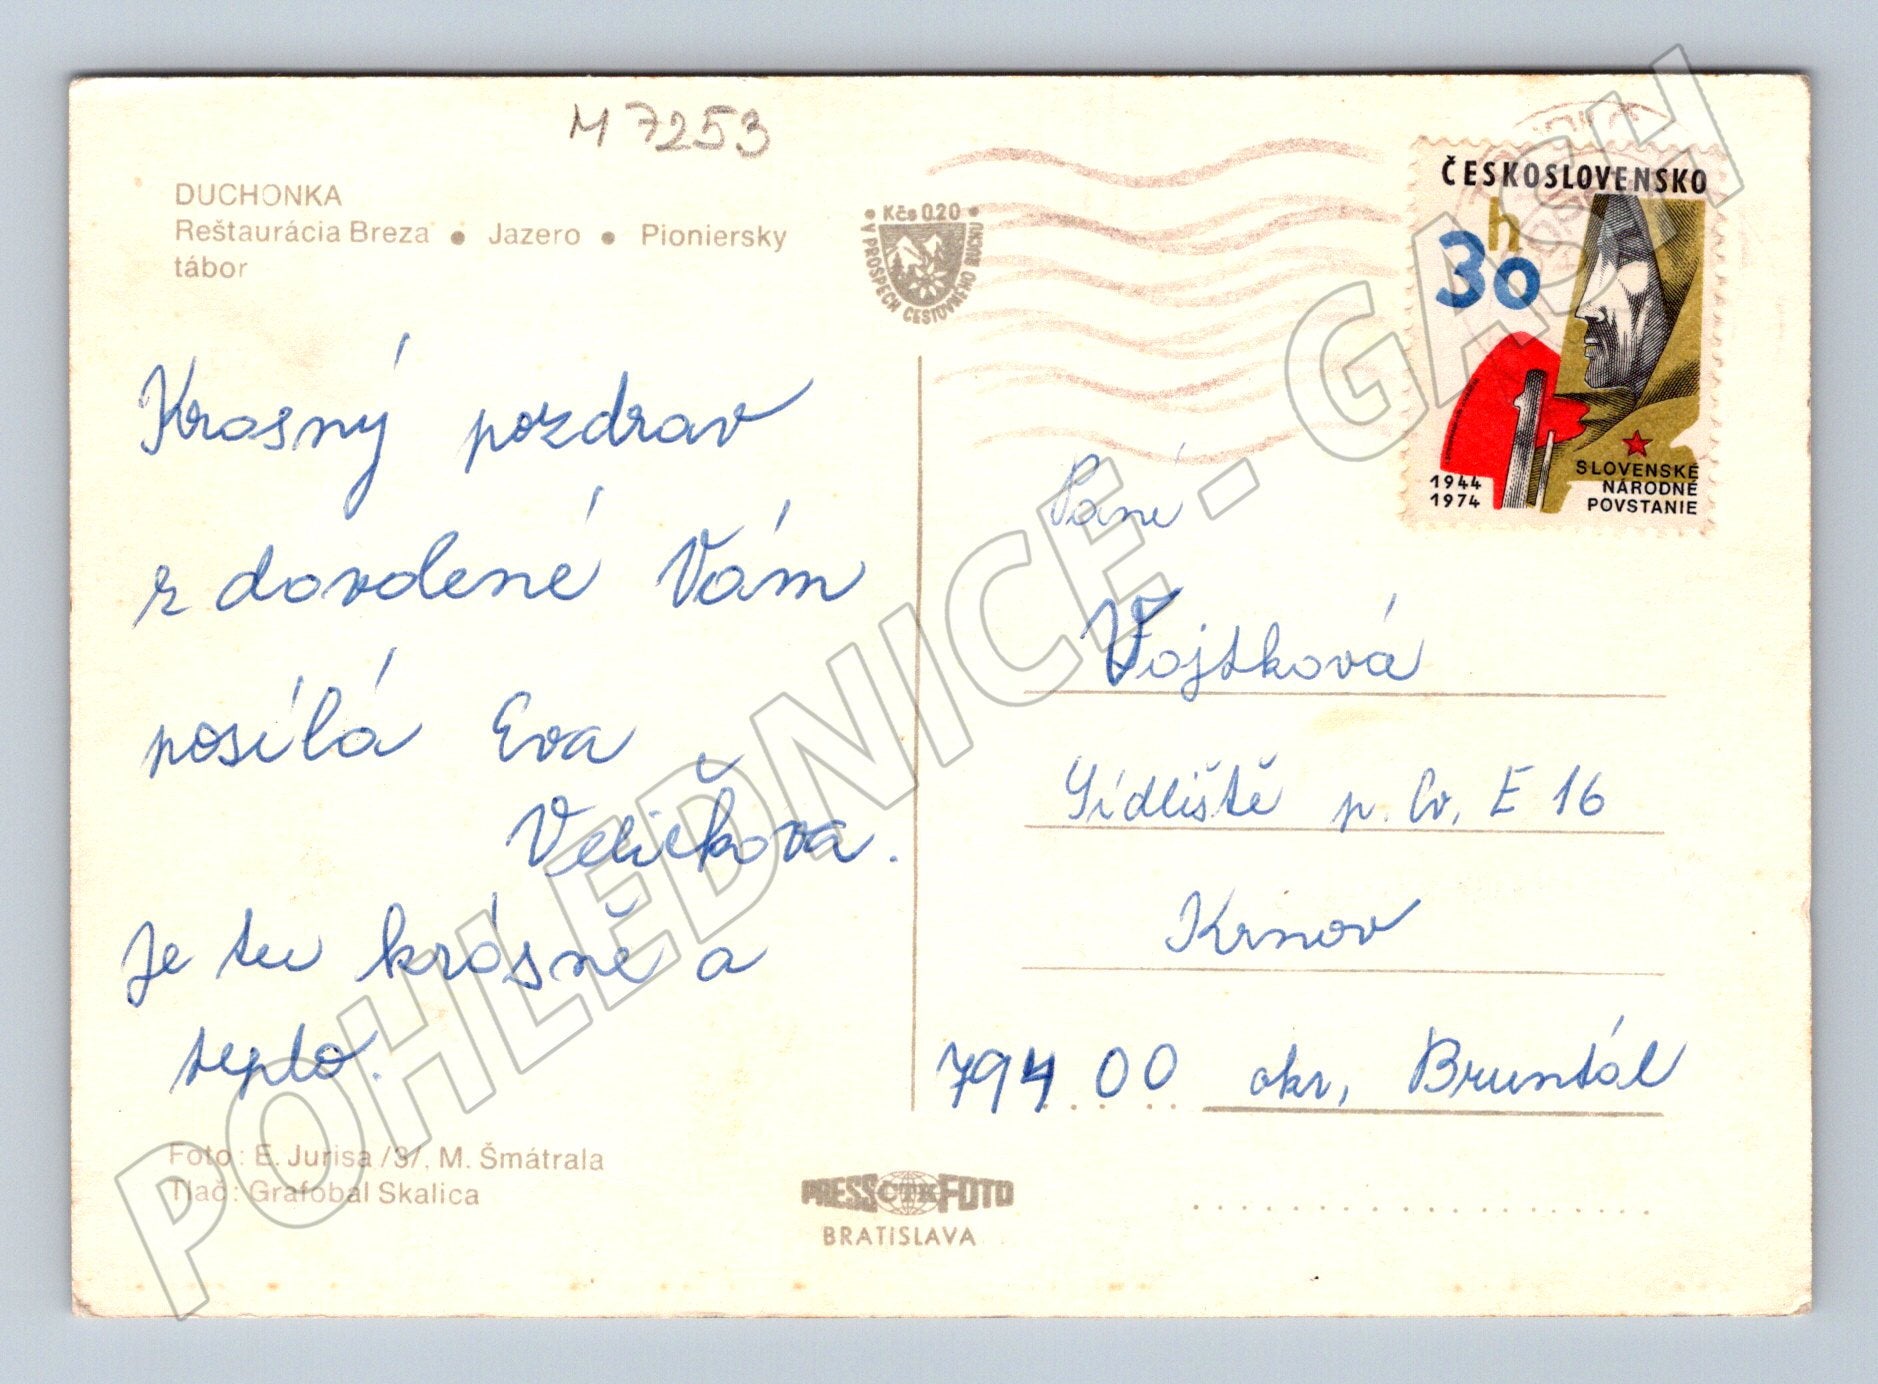 M 7253
DUCHONKA
Reštaurácia Breza • Jazero • Pioniersky
tábor
• Kčs 0.20 •
V PROSPECH CESTOVNÉHO RUCHU
ČESKOSLOVENSKO
h
30
1944
1974
SLOVENSKÉ
NÁRODNÉ
POVSTANIE
Krásný pozdrav
z dovolené Vám
posílá Eva
Veličkova.
Je tu krásně a
teplo.
Paní
Vojtková
Sídliště p. Cv. E 16
Krnov
794 00 okr. Bruntál
Foto: E. Jurisa /3/, M. Šmátrala
Tlač: Grafobal Skalica
PRESSČTKFOTO
BRATISLAVA
POHLEDNICE - GASH